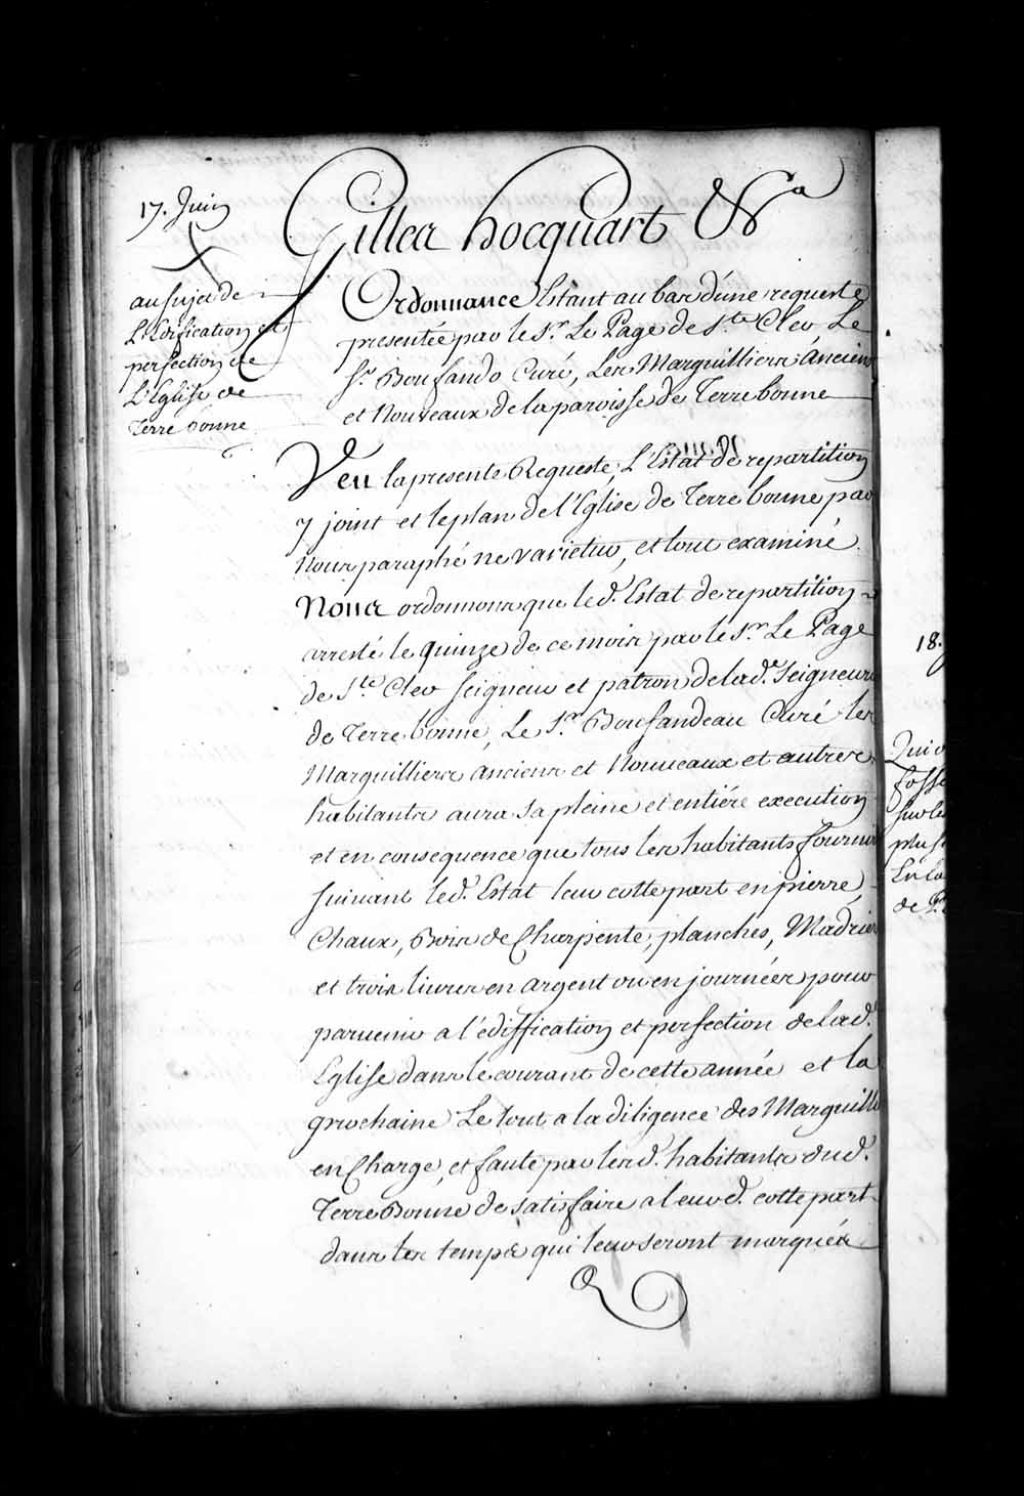 17. Juin
au sujet de
L'Edification et
perfection de
L'Eglise de
Terrebonne
Gilles hocquart &ca
Ordonnance Estant au bas d'une requeste
presentée par le Sr. Le Page de Ste Cler Le
Sr. Boufando Curé, Les Marguilliers Anciens
et Nouveaux de la paroisse de Terrebonne
Veu la presente Requeste, L'Estat de repartition
y joint et le plan de l'Eglise de Terrebonne par
Nous paraphé ne varietur, et tout examiné.
Nous ordonnons que led. Estat de repartition
arresté le quinze de ce mois par le Sr. Le Page
de Ste Cler Seigneur et patron de lad. Seigneurie
de Terrebonne, Le Sr. Boufandeau Curé les
Marguilliers anciens et Nouveaux et autres
habitants aura sa pleine et entiére execution
et en consequence que tous les habitants
suivant led. Estat leur cotte part en pierre,
Chaux, Bois de Charpente, planches, Madriers
et trois livres en argent ou en journées pour
parvenir a l'édiffication et perfection de lad.
Eglise dans le courant de cette année et la
prochaine Le tout a la diligence des Marguill
en Charge, et faute par lesd. habitants dud.
Terrebonne de satisfaire a leurd. cotte part
dans les temps qui leur seront marqués
18.